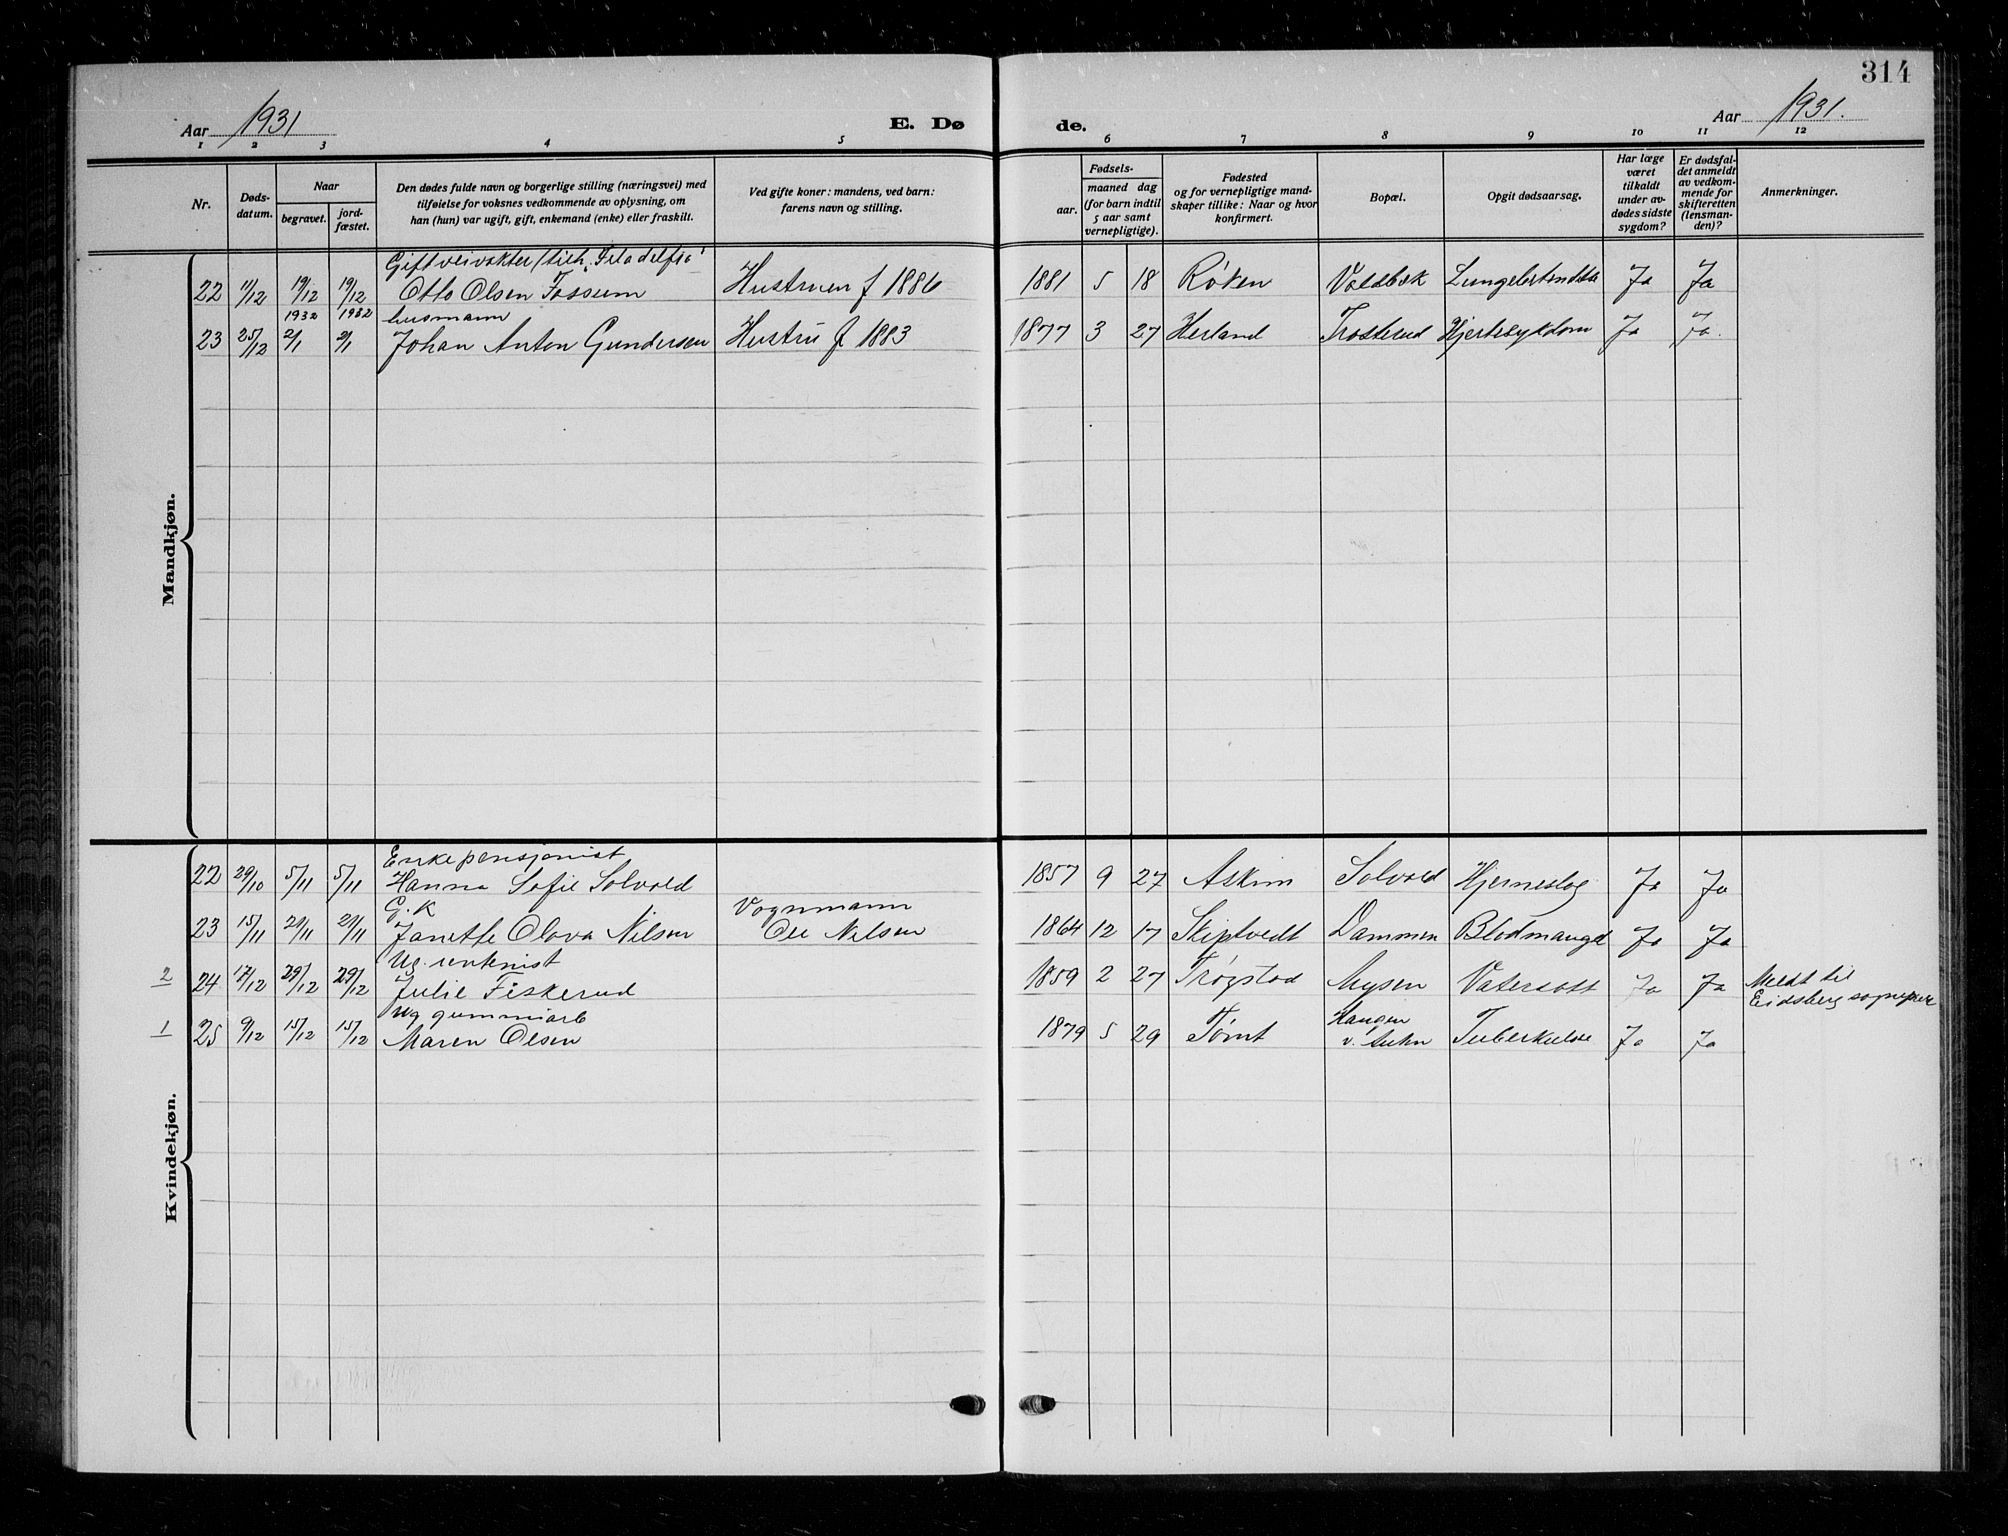 314
Aar 1931
E. Døde.
Aar 1931.
1 2 3 4 5 6 7 8 9 10 11 12
Nr.
Døds-
datum.
Naar
begravet.
jord-
fæstet.
Den dødes fulde navn og borgerlige stilling (næringsvei) med
tilføielse for voksnes vedkommende av oplysning, om
han (hun) var ugift, gift, enkemand (enke) eller fraskilt.
Ved gifte koner: mandens, ved barn:
farens navn og stilling.
Fødsels-
aar.
maaned dag
(for barn indtil
5 aar samt
vernepligtige).
Fødested
og for vernepligtige mand-
skaper tillike: Naar og hvor
konfirmert.
Bopæl.
Opgit dødsaarsag.
Har læge
været
tilkaldt
under av-
dødes sidste
sygdom?
Er dødsfal-
det anmeldt
av vedkom-
mende for
skifteretten
(lensman-
den)?
Anmerkninger.
Mandkjøn.
Gift veivokter (tilh. "Filadelfia"
22 11/12 19/12 19/12 Otto Olsen Fossum Hustruen f 1886 1881 5 18 Røken Voldbæk Ja Ja
1932 1932 husmann
23 25/12 2/1 2/1 Johan Anton Gundersen Hustru f 1883 1877 3 27 Herland Trosterud Hjertesykdom Ja Ja.
Kvindekjøn.
Enke pensjonist
22 29/10 5/11 5/11 Hanna Sofie Solvold 1857 9 27 Askim Solvold Hjerneslag Ja Ja
G. K Vognmann
23 15/11 21/11 21/11 Janette Olava Nilsen Ole Nilsen 1864 12 17 Skiptvedt Dammen Blodmangel Ja Ja
Ug. rentenist
2 24 17/12 29/12 29/12 Julie Fiskerud 1859 2 27 Trøgstad Mysen Vatersott Ja Ja Meldt til
Eidsberg sognepr
Ug gummiarb
1 25 9/12 15/12 15/12 Maren Olsen 1879 5 29 Tømt Haugen Tuberkulose Ja Ja